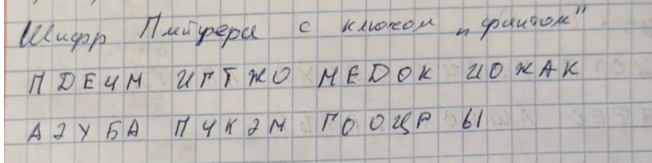 Шифр Плейфера с ключом "фантом"
ПДЕЧМ ИГТЖО МЕДОК ИОЖАК
АЭУБА ПЧКЭМ ГООЦР Ы